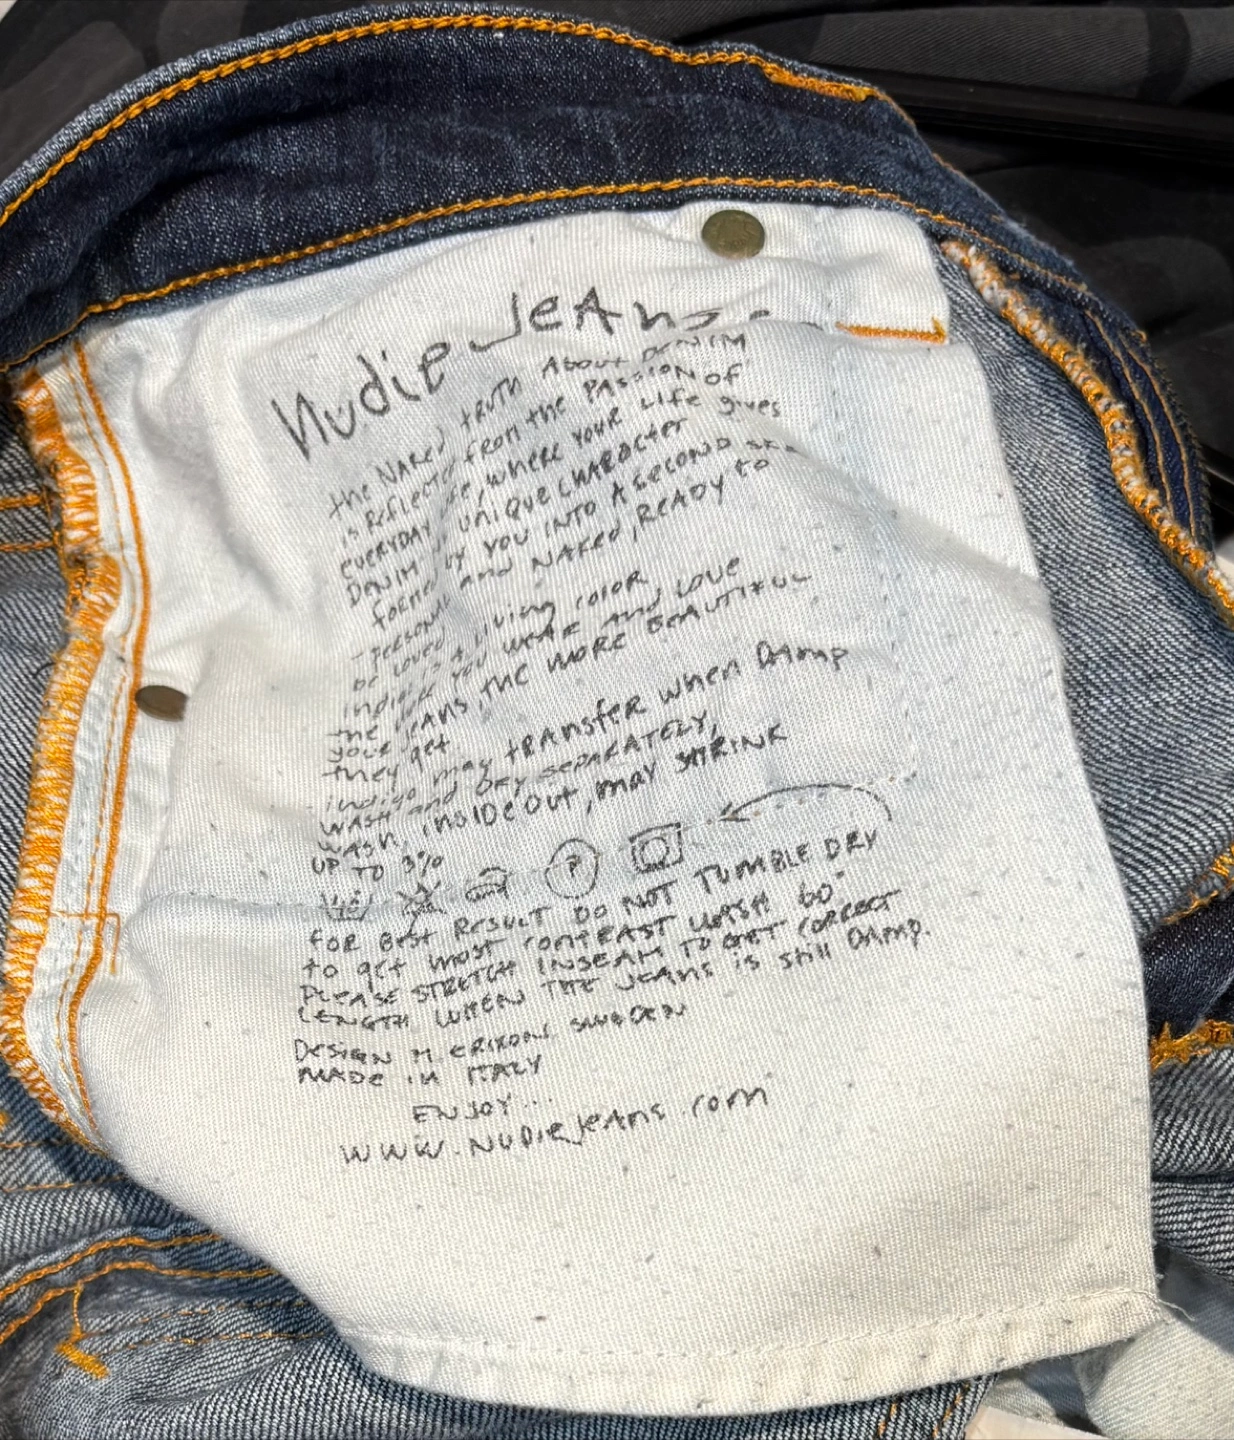 Nudie Jeans
the NAKED tRUTH ABout DENIM
is Reflected from the PASSION of
EVERYDAY Life, where YOUR Life gives
DENIM UNIQUE CHARACter
formed by YOU INTO A SECOND SKIN
-personal and NAKED, READY to
be Loved
indigo is A living coloR
the you WEAR and LOVE
your jeans, the MORE BEAUTIFUL
they get
indigo may tRANSfer when DAmp
WASH and DRY SEPARATELY,
WASH inside out, may SHRINK
UP TO 3%
60 P
FOR BEST RESULT DO NOT TUMBLE DRY
to get most CONTRAST WASH 60°
PLEASE STRETCH INSEAM TO GET CORRECT
LENGTH WHEN THE JEANS is still DAMP.
DESIGN M. ERIXON. SWEDEN
MADE in ITALY
ENJOY...
WWW.NUDIEJEANS.COM